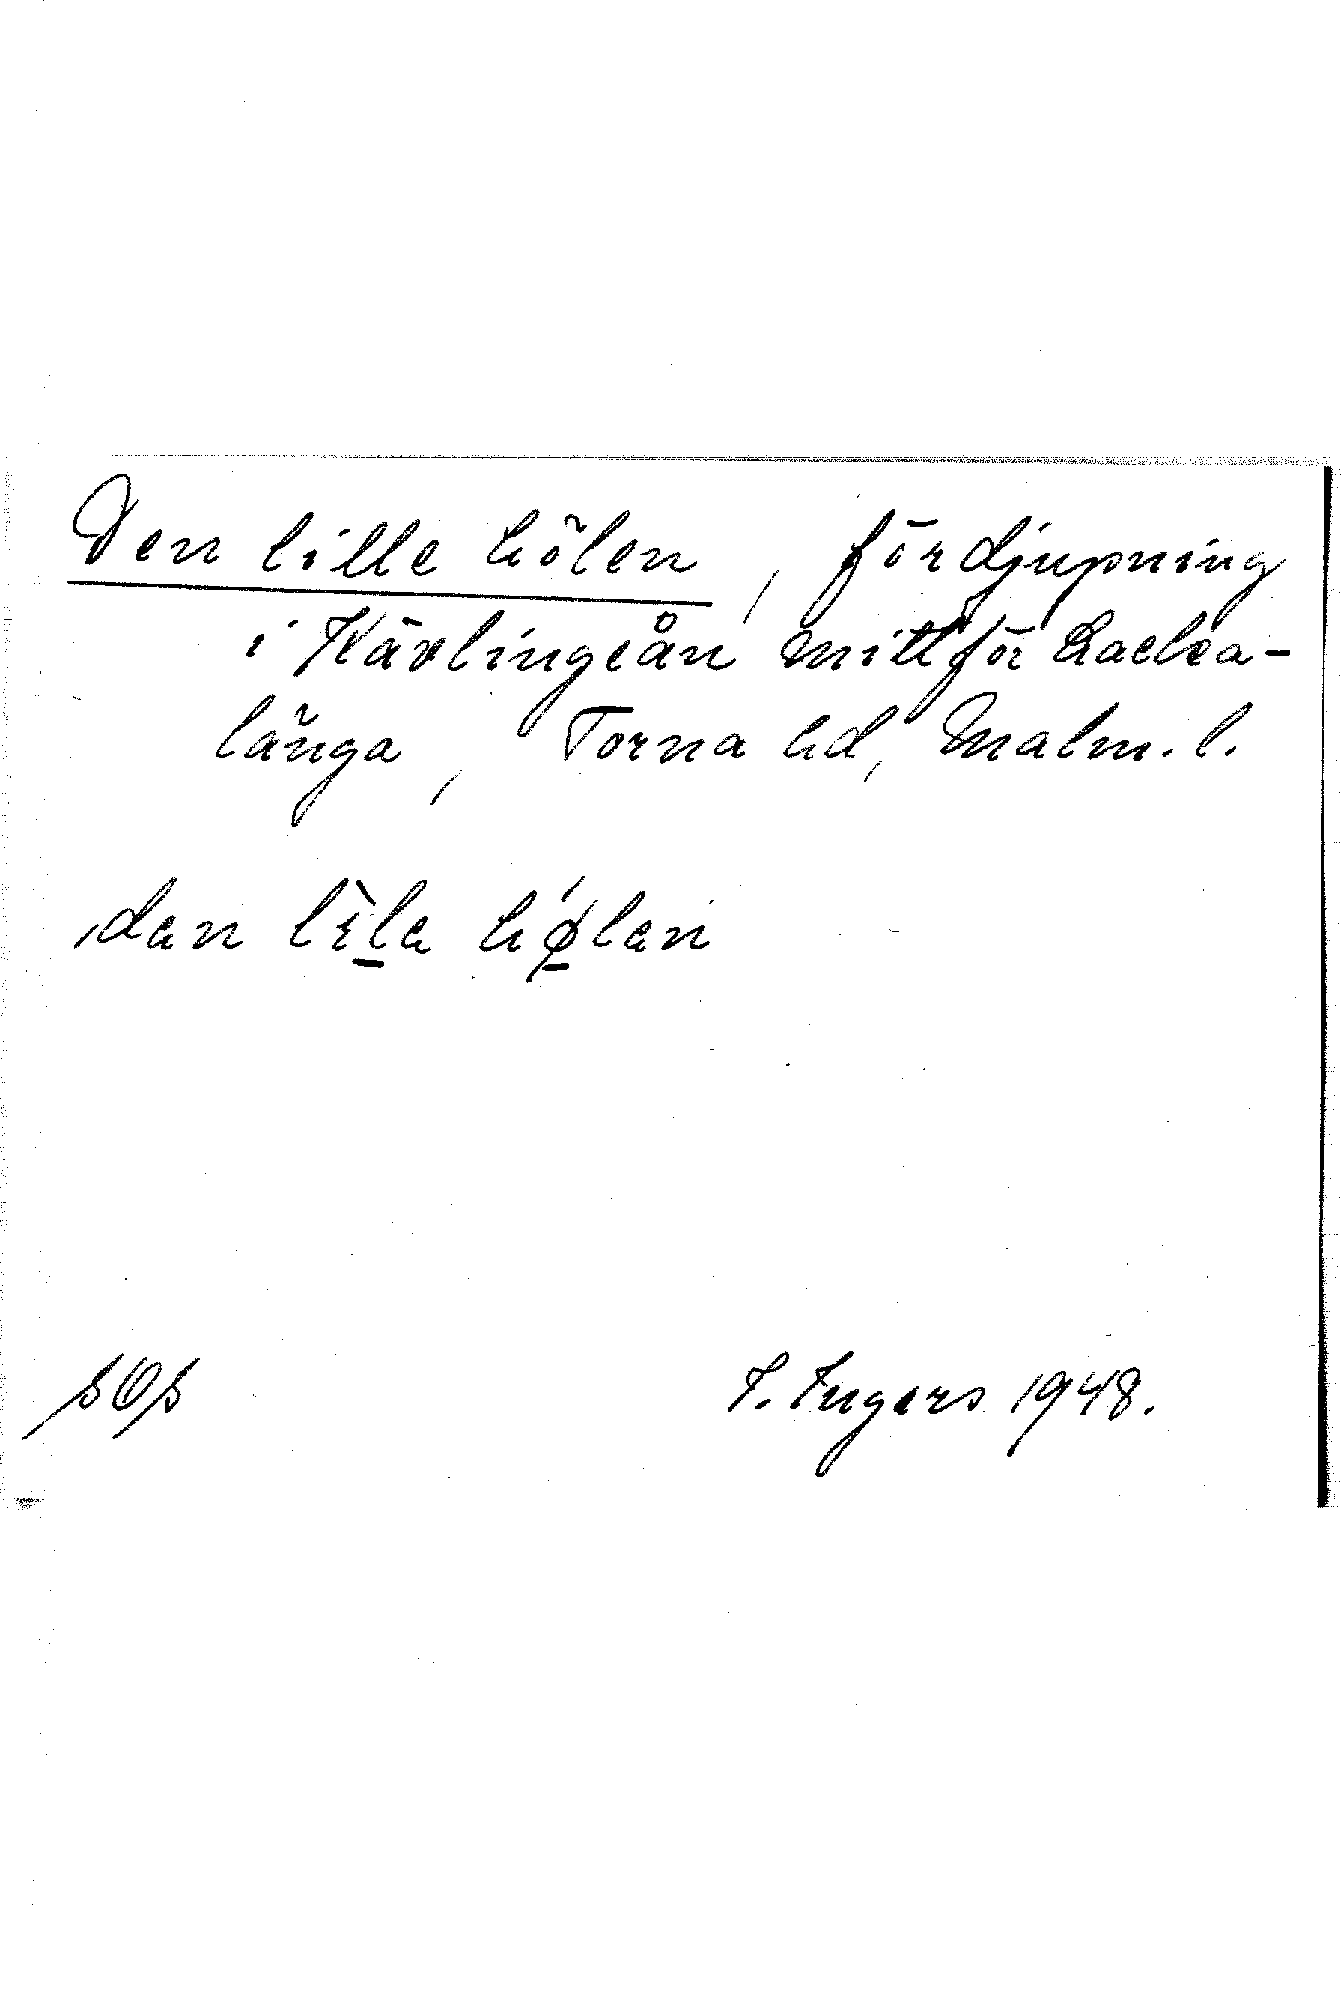 Den lille hölen, fördjupning
i Kävlingeån mittför Backa-
länga, Torna hd, Malm. l.
dan lìla hǿlan
I. Ingers 1948.